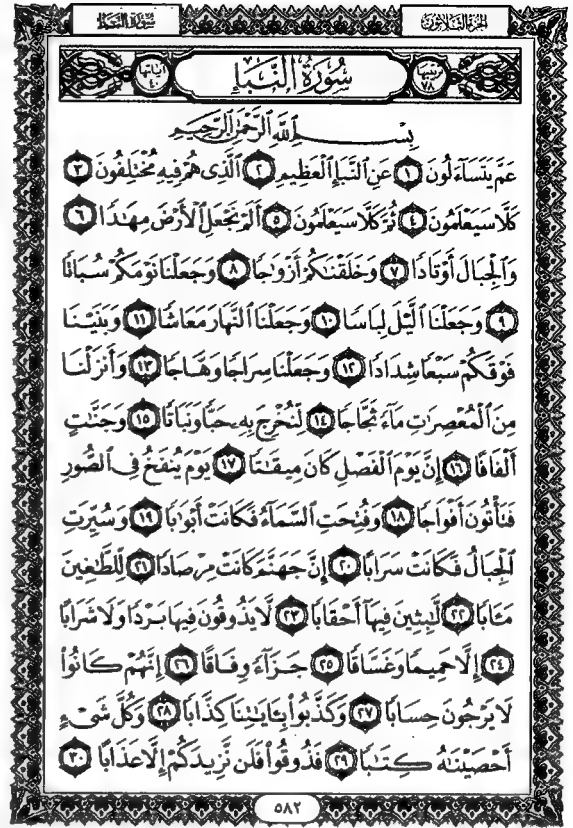 الجزء الثلاثون سورة النبإ
ترتيبها ٧٨ سُورَةُ النَّبَإِ آياتها ٤٠
بِسْمِ ٱللَّهِ ٱلرَّحْمَٰنِ ٱلرَّحِيمِ
عَمَّ يَتَسَآءَلُونَ ١ عَنِ ٱلنَّبَإِ ٱلْعَظِيمِ ٢ ٱلَّذِى هُمْ فِيهِ مُخْتَلِفُونَ ٣
كَلَّا سَيَعْلَمُونَ ٤ ثُمَّ كَلَّا سَيَعْلَمُونَ ٥ أَلَمْ نَجْعَلِ ٱلْأَرْضَ مِهَٰدًا ٦
وَٱلْجِبَالَ أَوْتَادًا ٧ وَخَلَقْنَٰكُمْ أَزْوَٰجًا ٨ وَجَعَلْنَا نَوْمَكُمْ سُبَاتًا
٩ وَجَعَلْنَا ٱلَّيْلَ لِبَاسًا ١٠ وَجَعَلْنَا ٱلنَّهَارَ مَعَاشًا ١١ وَبَنَيْنَا
فَوْقَكُمْ سَبْعًا شِدَادًا ١٢ وَجَعَلْنَا سِرَاجًا وَهَّاجًا ١٣ وَأَنزَلْنَا
مِنَ ٱلْمُعْصِرَٰتِ مَآءً ثَجَّاجًا ١٤ لِّنُخْرِجَ بِهِۦ حَبًّا وَنَبَاتًا ١٥ وَجَنَّٰتٍ
أَلْفَافًا ١٦ إِنَّ يَوْمَ ٱلْفَصْلِ كَانَ مِيقَٰتًا ١٧ يَوْمَ يُنفَخُ فِى ٱلصُّورِ
فَتَأْتُونَ أَفْوَاجًا ١٨ وَفُتِحَتِ ٱلسَّمَآءُ فَكَانَتْ أَبْوَٰبًا ١٩ وَسُيِّرَتِ
ٱلْجِبَالُ فَكَانَتْ سَرَابًا ٢٠ إِنَّ جَهَنَّمَ كَانَتْ مِرْصَادًا ٢١ لِّلطَّٰغِينَ
مَـَٔابًا ٢٢ لَّٰبِثِينَ فِيهَآ أَحْقَابًا ٢٣ لَّا يَذُوقُونَ فِيهَا بَرْدًا وَلَا شَرَابًا
٢٤ إِلَّا حَمِيمًا وَغَسَّاقًا ٢٥ جَزَآءً وِفَاقًا ٢٦ إِنَّهُمْ كَانُوا۟
لَا يَرْجُونَ حِسَابًا ٢٧ وَكَذَّبُوا۟ بِـَٔايَٰتِنَا كِذَّابًا ٢٨ وَكُلَّ شَىْءٍ
أَحْصَيْنَٰهُ كِتَٰبًا ٢٩ فَذُوقُوا۟ فَلَن نَّزِيدَكُمْ إِلَّا عَذَابًا ٣٠
٥٨٢